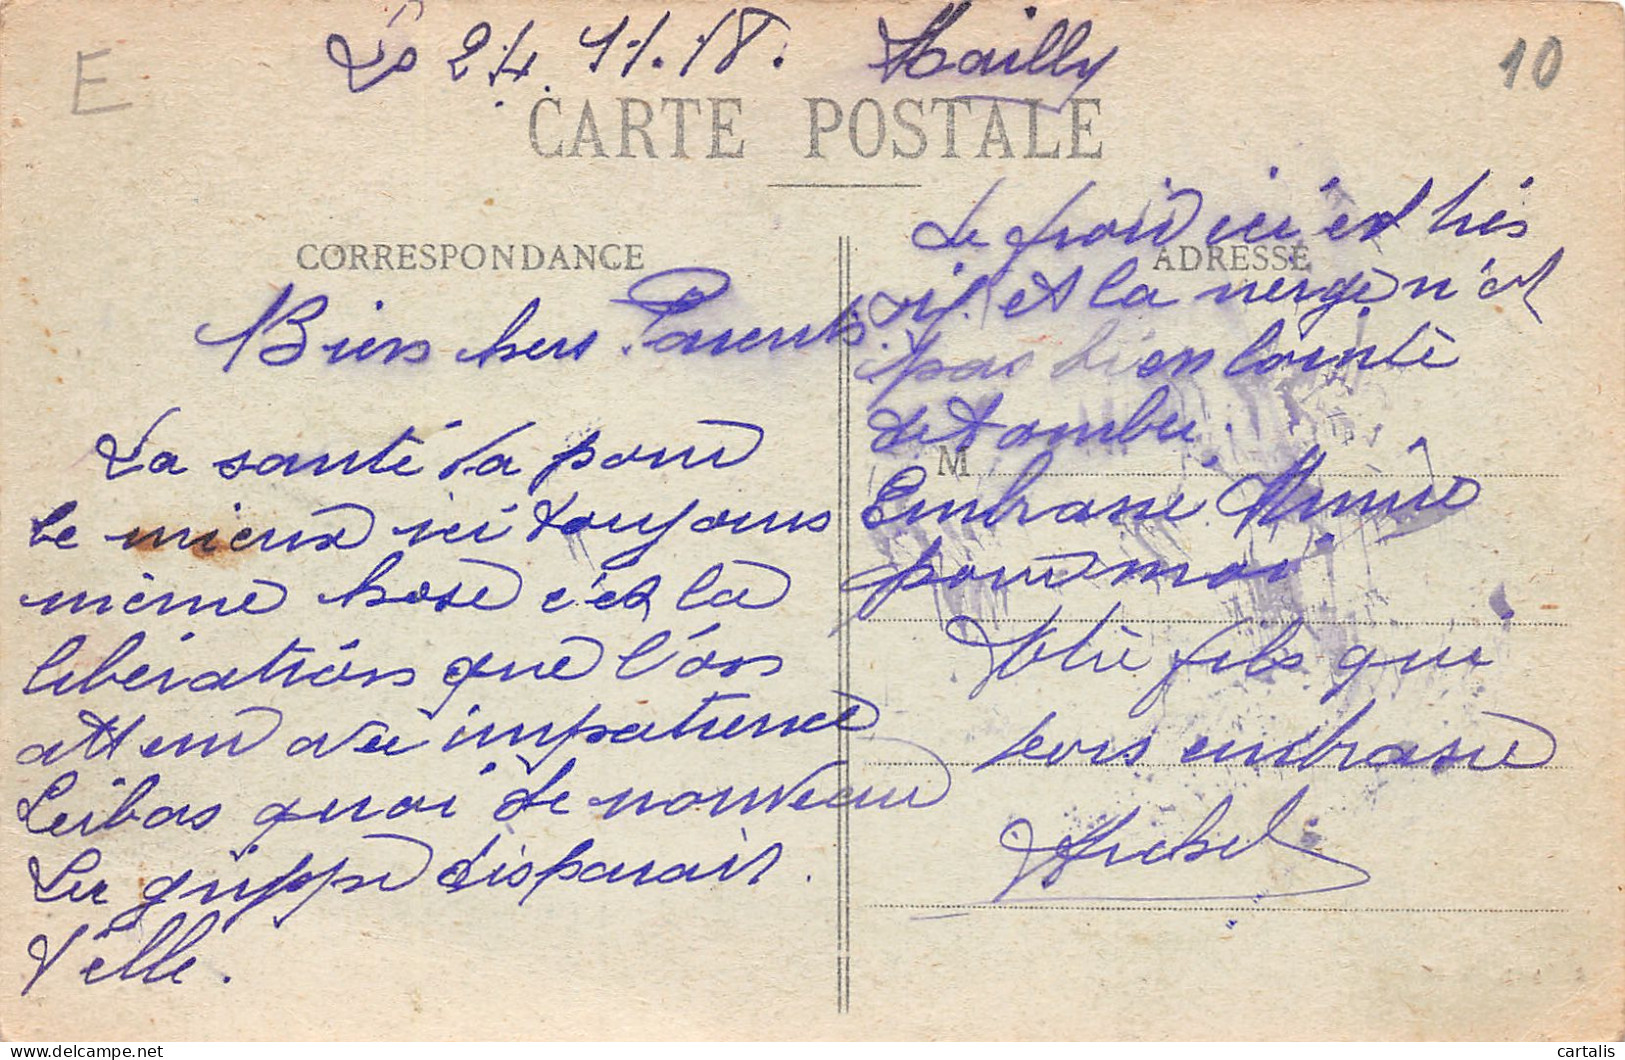 E
Le 24.11.18. Mailly
10
CARTE POSTALE
CORRESPONDANCE
Bien chers Parents.
La santé va pour
le mieux ici toujours
même chose c'est la
libération que l'on
attend avec impatience
quoi de nouveau
La grippe disparait
t'elle.
ADRESSE
Le froid ici est très
vif. et la neige n'est
pas bien lointe
de tomber.
M
Embrassé Mimie
pour moi
Votre fils qui
vous embrasse
Michel
cartalis